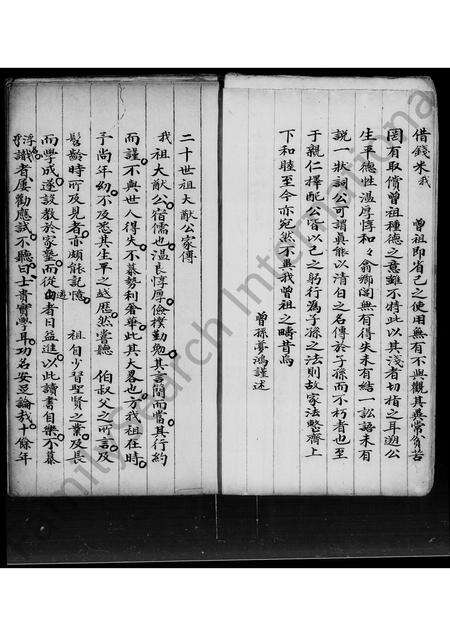 借錢米我 曾祖即省己之使用無有不與觀其畀嘗貧苦
罔有取償曾祖種德之意雖不特此以其淺者切指之耳迥公
生平德性溫厚惇和翁鄉閭無有得失未有結一訟語未有
說一狀詞公可謂真能以清白之名傳於子孫而不朽者也至
于親仁擇配公皆以己之躬行為子孫之法則故家法整齊上
下和睦至今亦宛然不異我曾祖之疇昔焉
曾孫夢鴻謹述
二十世祖大猷公家傳
我 祖大猷公宿儒也溫良惇厚儉樸勤勉其言簡而當其行約
而謹不與世人得失不慕勢利奢華此其大畧也方我祖在時
予尚年幼不及悉其生平之越歷然嘗聽 伯叔父之所言及
髫齡時所及見者亦頗能記憶 祖自少習聖賢之業及長
而學成遂設教於家塾而從遊者日益進以此讀書自樂不慕
浮 識者屢勸應試不聽曰士貴實學耳功名安足論哉十餘年
FamilySearch International